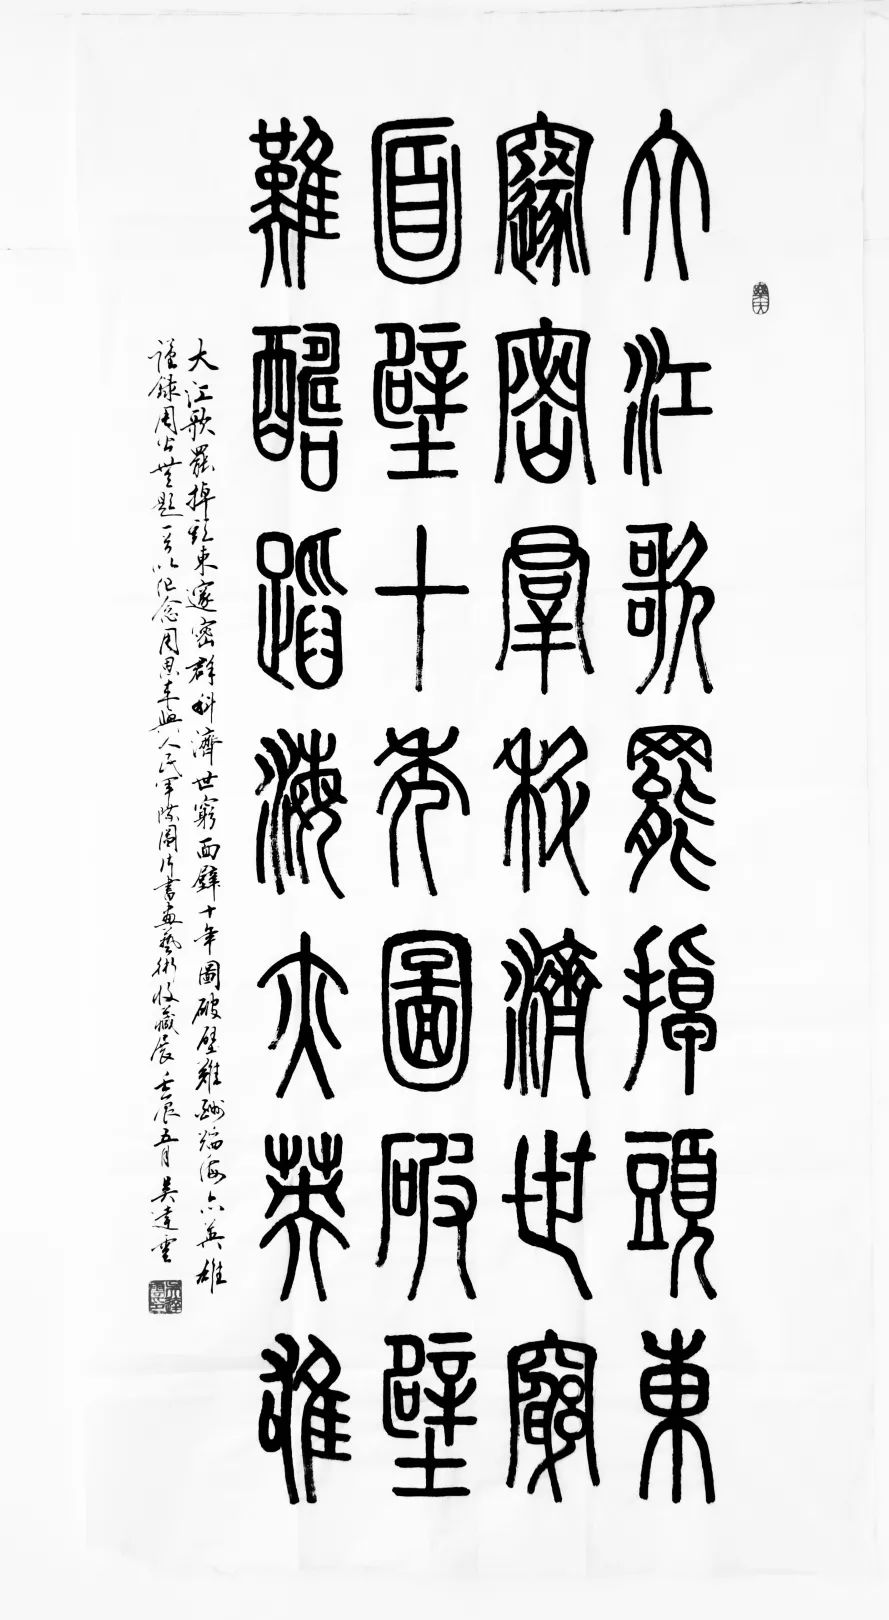 大江歌罷掉頭東
邃密羣科濟世窮
面壁十年圖破壁
難酬蹈海亦英雄
大江歌罷掉頭東邃密群科濟世窮面壁十年圖破壁難酬蹈海亦英雄
謹錄周公無題一首以紀念周恩來與人民軍隊圖片書畫藝術收藏展 壬辰五月 吳達雲